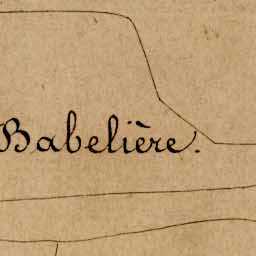 Babelière.